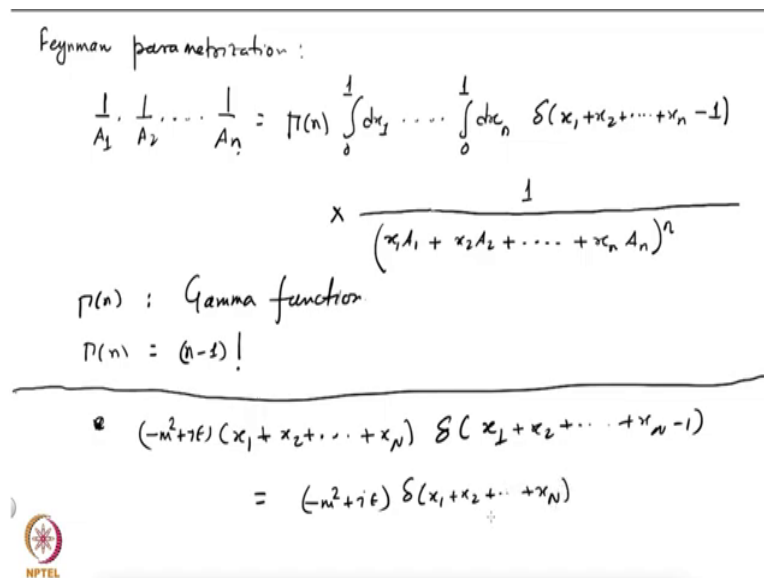 Feynman parametrization:
1/A₁ · 1/A₂ .... 1/Aₙ = Γ(n) ∫₀¹ dx₁ .... ∫₀¹ dxₙ δ(x₁+x₂+....+xₙ-1)
× 1/(x₁A₁ + x₂A₂ + ..... + xₙAₙ)ⁿ
Γ(n) : Gamma function
Γ(n) = (n-1)!
(-m²+iϵ)(x₁+x₂+...+x_N) δ(x₁+x₂+...+x_N-1)
= (-m²+iϵ) δ(x₁+x₂+..+x_N)
NPTEL